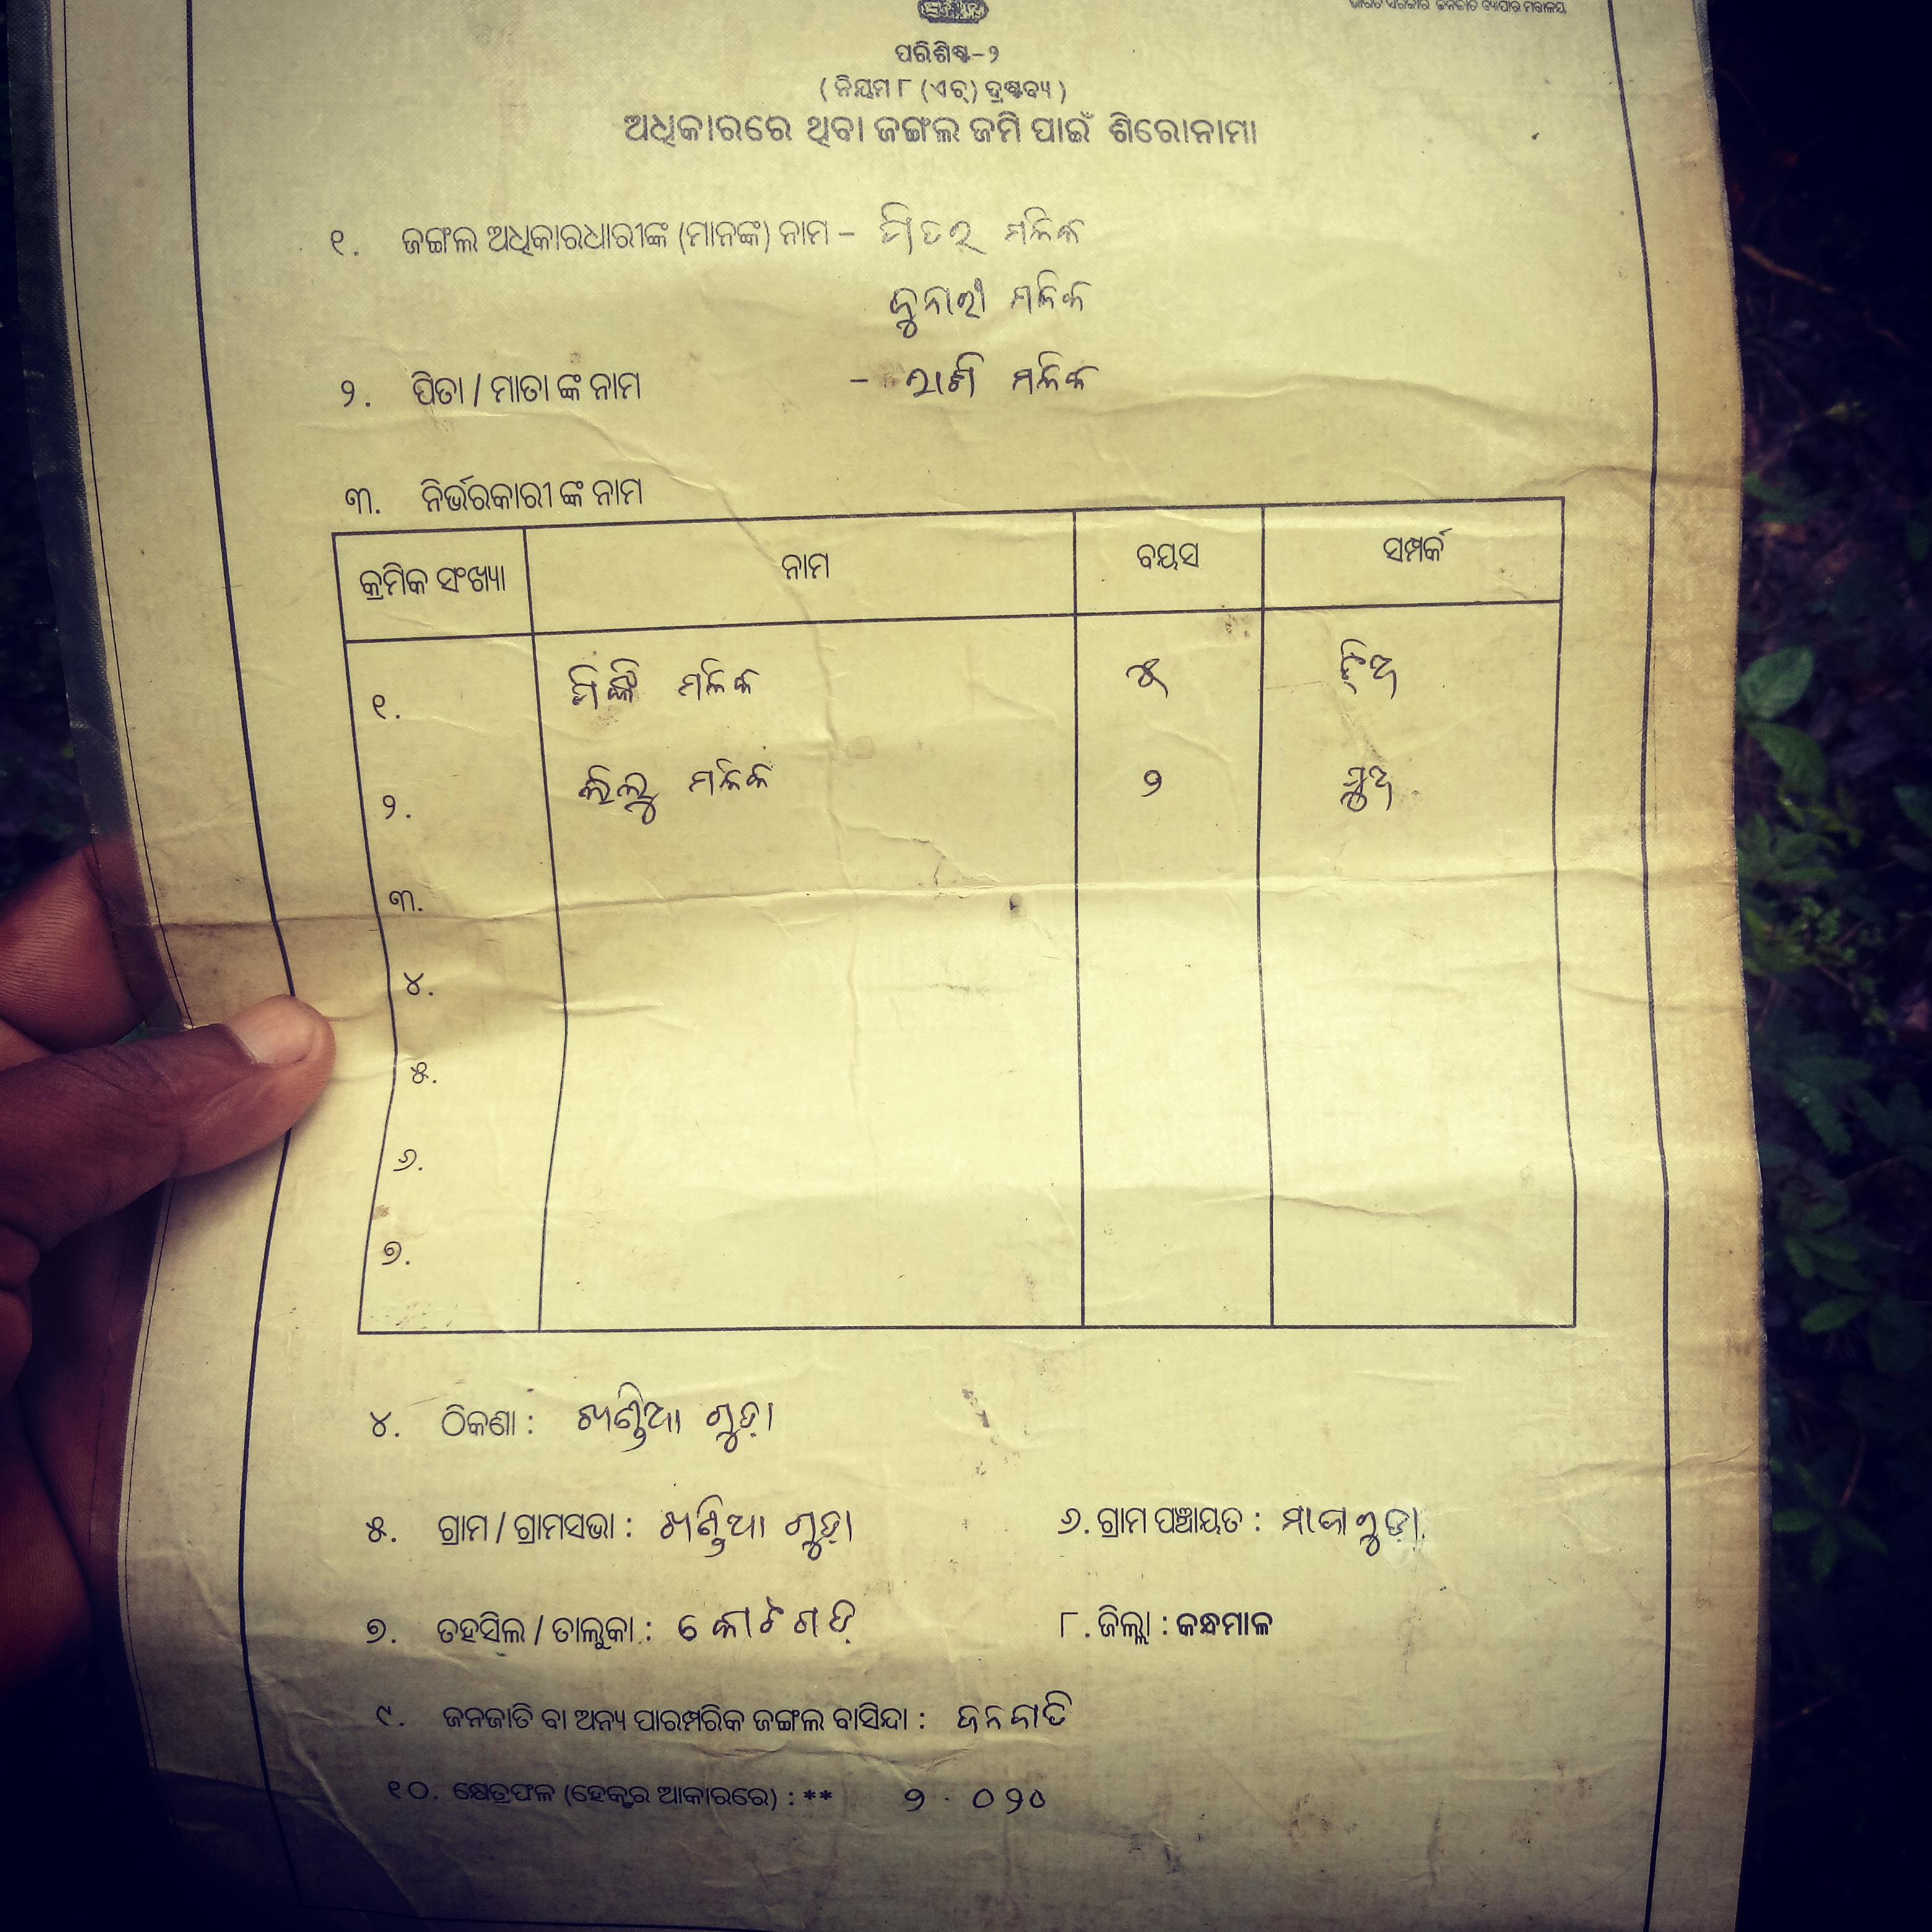 ଭାରତ ସରକାର ଜନଜାତି ବ୍ୟାପାର ମନ୍ତ୍ରାଳୟ
ପରିଶିଷ୍ଟ-୨
( ନିୟମ ୮ (ଏଚ୍) ଦ୍ରଷ୍ଟବ୍ୟ )
ଅଧିକାରରେ ଥିବା ଜଙ୍ଗଲ ଜମି ପାଇଁ ଶିରୋନାମା
୧. ଜଙ୍ଗଲ ଅଧିକାରଧାରୀଙ୍କ (ମାନଙ୍କ) ନାମ – ମିତର୍ ମଳିକ
ମଳିକ
୨. ପିତା / ମାତା ଙ୍କ ନାମ – ମଳିକ
୩. ନିର୍ଭରକାରୀ ଙ୍କ ନାମ
କ୍ରମିକ ସଂଖ୍ୟା ନାମ ବୟସ ସମ୍ପର୍କ
୧. ମିଙ୍କି ମଳିକ ୫ ଝିଅ
୨. ଲିଲୁ ମଳିକ ୨ ପୁଅ
୩.
୪.
୫.
୬.
୭.
୪. ଠିକଣା : ଖଣ୍ଡିଆ ଗୁଡ଼ା
୫. ଗ୍ରାମ / ଗ୍ରାମସଭା : ଖଣ୍ଡିଆ ଗୁଡ଼ା ୬. ଗ୍ରାମ ପଞ୍ଚାୟତ :
୭. ତହସିଲ / ତାଲୁକା : କୋଟଗଡ଼ ୮. ଜିଲ୍ଲା : କନ୍ଧମାଳ
୯. ଜନଜାତି ବା ଅନ୍ୟ ପାରମ୍ପରିକ ଜଙ୍ଗଲ ବାସିନ୍ଦା : ଜନଜାତି
୧୦. କ୍ଷେତ୍ରଫଳ (ହେକ୍ଟର ଆକାରରେ) : ** ୨.୦୨୦